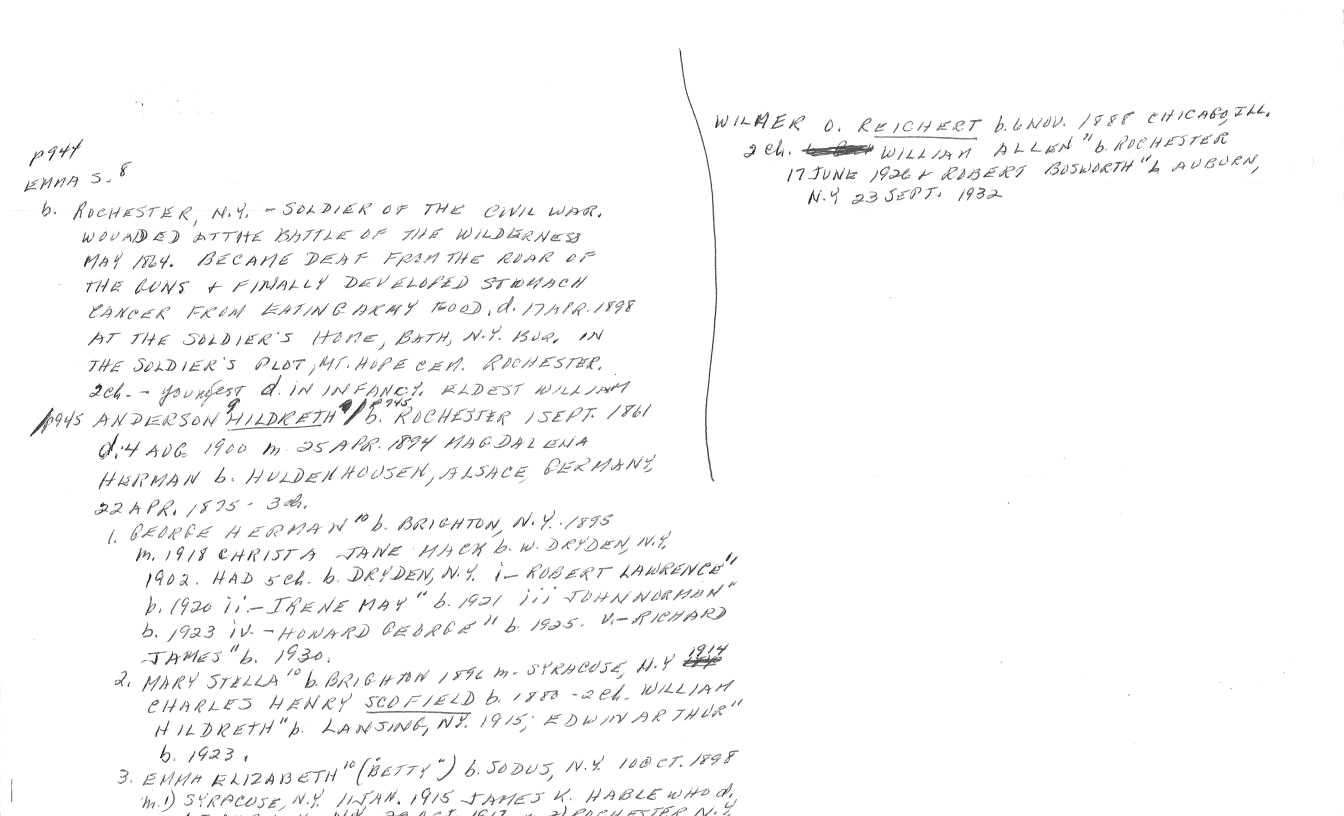 p944
EMMA S. 8
b. ROCHESTER, N.Y. - SOLDIER OF THE CIVIL WAR.
WOUNDED AT THE BATTLE OF THE WILDERNESS
MAY 1864. BECAME DEAF FROM THE ROAR OF
THE GUNS & FINALLY DEVELOPED STOMACH
CANCER FROM EATING ARMY FOOD. d. 17 APR. 1898
AT THE SOLDIER'S HOME, BATH, N.Y. BUR. IN
THE SOLDIER'S PLOT, MT. HOPE CEM. ROCHESTER.
2 ch. - youngest d. IN INFANCY. ELDEST WILLIAM
p945 ANDERSON 9 HILDRETH 9 / p945 b. ROCHESTER 1 SEPT. 1861
d. 4 AUG 1900 m. 25 APR. 1894 MAGDALENA
HERMAN b. HULDENHOUSEN, ALSACE, GERMANY,
22 APR. 1875 - 3 ch.
1. GEORGE HERMAN 10 b. BRIGHTON, N.Y. 1895
m. 1918 CHRISTA JANE MACK b. W. DRYDEN, N.Y.
1902. HAD 5 ch. b. DRYDEN, N.Y. i - ROBERT LAWRENCE 11
b. 1920 ii. - IRENE MAY 11 b. 1921 iii JOHN NORMAN 11
b. 1923 iv. - HOWARD GEORGE 11 b. 1925. v. - RICHARD
JAMES 11 b. 1930.
2. MARY STELLA 10 b. BRIGHTON 1896 m. SYRACUSE, N.Y 1914
CHARLES HENRY SCOFIELD b. 1880 - 2 ch. WILLIAM
HILDRETH 11 b. LANSING, N.Y. 1915; EDWIN ARTHUR 11
b. 1923.
3. EMMA ELIZABETH 10 ("BETTY") b. SODUS, N.Y. 10 OCT. 1898
m. 1) SYRACUSE, N.Y. 11 JAN. 1915 JAMES K. HABLE WHO d.
2) ROCHESTER N.Y.
WILMER O. REICHERT b. 6 NOV. 1888 CHICAGO, ILL.
2 ch. WILLIAM ALLEN 11 b. ROCHESTER
17 JUNE 1926 & ROBERT BOSWORTH 11 b AUBURN,
N.Y 23 SEPT. 1932